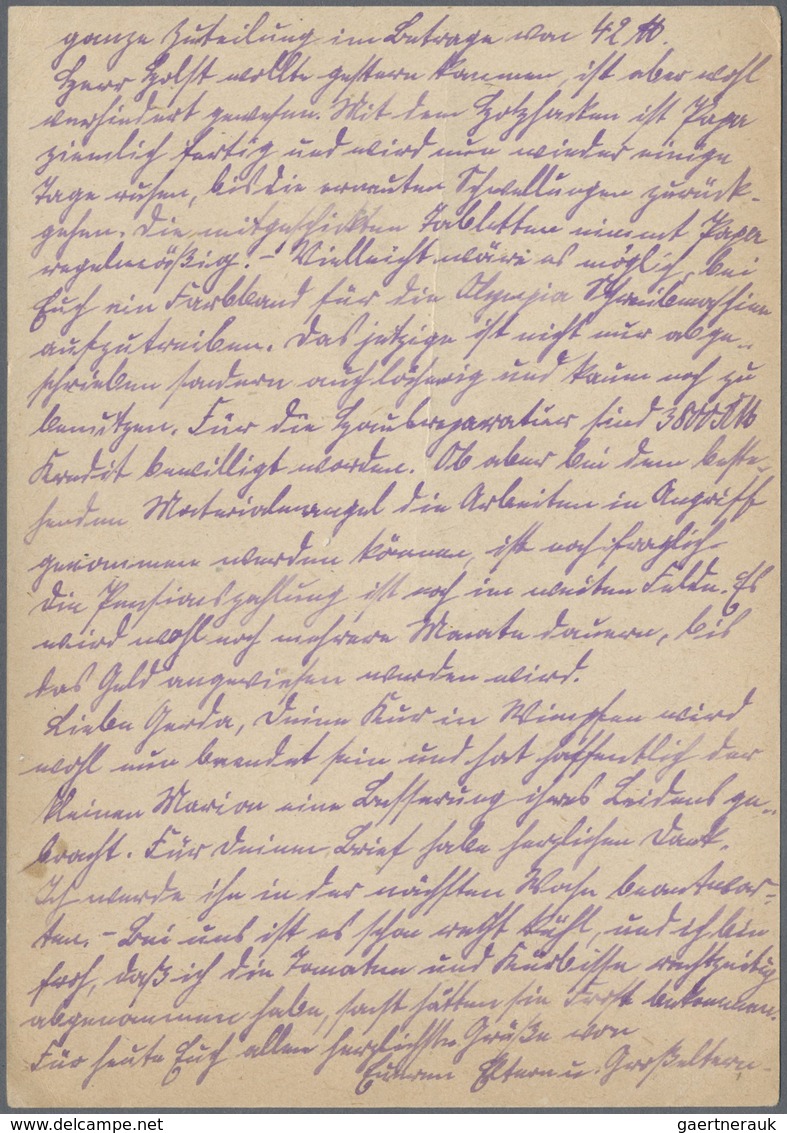 ganze Zuteilung im Betrage von 42 M.
Herr Holst wollte gestern kommen, ist aber wohl
verhindert gewesen. Mit dem Holzhacken ist Papa
ziemlich fertig und wird nun wieder einige
Tage ruhen, bis die erneuten Schwellungen zurück-
gehen. Die mitgeschickten Tabletten nimmt Papa
regelmäßig. – Vielleicht wäre es möglich, bei
Euch ein Farbband für die Olympia Schreibmaschine
aufzutreiben. Das jetzige ist nicht nur abge-
schrieben sondern auch löcherig und kaum noch zu
benutzen. Für die Hausreparatur sind 3800 RM
Kredit bewilligt worden. Ob aber bei dem beste-
henden Materialmangel die Arbeiten in Angriff
genommen werden können, ist noch fraglich
Die Pensionszahlung ist noch im weiten Felde. Es
wird wohl noch mehrere Monate dauern, bis
das Geld angewiesen werden wird.
Liebe Gerda, Deine Kur in Wimpfen wird
wohl nun beendet sein und hat hoffentlich der
kleinen Marion eine Besserung ihres Leidens ge-
bracht. Für Deinen Brief habe herzlichen Dank.
Ich werde ihn in der nächsten Woche beantwor-
ten. – Bei uns ist es schon recht kühl, und ich bin
froh, daß ich die Tomaten und Kürbisse rechtzeitig
abgenommen habe, sonst hätten sie Frost bekommen.
Für heute Euch allen herzlichste Grüße von
Euren Eltern u. Großeltern.
gaertnerauk